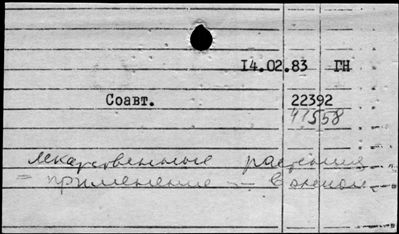 14.02.83 ГН
Соавт. 22392
41558
лекарственные растения
= применение —